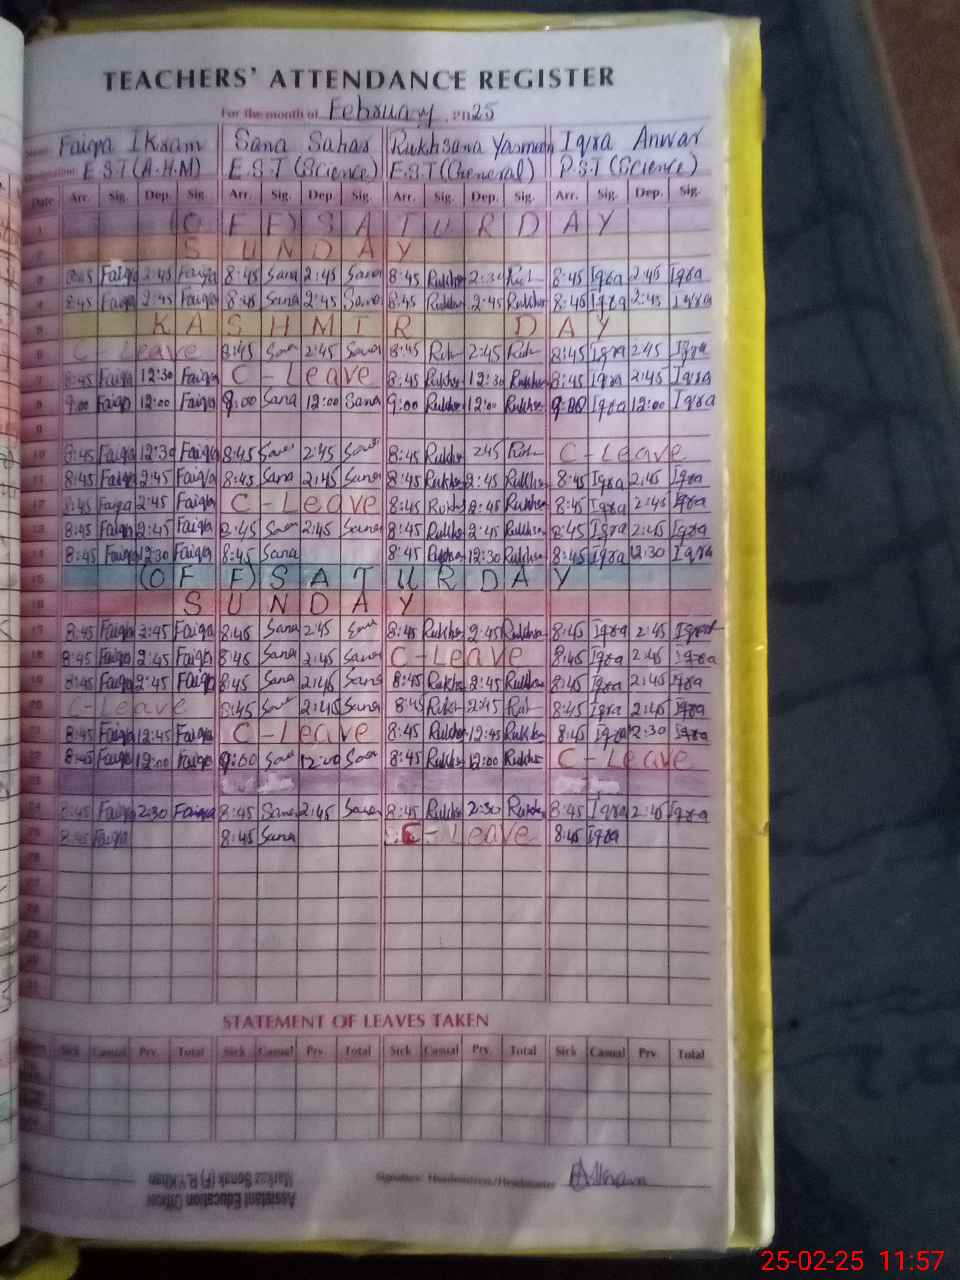 TEACHERS' ATTENDANCE REGISTER
For the month of February 2025
Name: Faiqa Ikram Sana Sahar Rukhsana Yasmeen Iqra Anwar
E.S.T (A.H.M) E.S.T (Science) E.S.T (General) P.S.T (Science)
Date Arr. Sig. Dep. Sig. Arr. Sig. Dep. Sig. Arr. Sig. Dep. Sig. Arr. Sig. Dep. Sig.
1 (OFF) SATURDAY
SUNDAY
8:45 Faiqa 2:45 Faiqa 8:45 Sana 2:45 Sana 8:45 Rukhs 2:30 8:45 Iqra 2:45 Iqra
4 8:45 Faiqa 2:45 Faiqa 8:45 Sana 2:45 Sana 8:45 Rukhs 2:45 Rukhs 8:45 Iqra 2:45 Iqra
5 KASHMIR DAY
6 C-Leave 8:45 Sana 2:45 Sana 8:45 Rukh 2:45 Rukh 8:45 Iqra 2:45 Iqra
7 8:45 Faiqa 12:30 Faiqa C-Leave 8:45 Rukhs 12:30 Rukhs 8:45 Iqra 2:45 Iqra
8 9:00 Faiqa 12:00 Faiqa 9:00 Sana 12:00 Sana 9:00 Rukhs 12:00 Rukhs 9:00 Iqra 12:00 Iqra
9
10 8:45 Faiqa 12:30 Faiqa 8:45 Sana 2:45 Sana 8:45 Rukhs 2:45 Rukh C-Leave
11 8:45 Faiqa 2:45 Faiqa 8:45 Sana 2:45 Sana 8:45 Rukhs 2:45 Rukhs 8:45 Iqra 2:45 Iqra
12 8:45 Faiqa 2:45 Faiqa C-Leave 8:45 Rukhs 2:45 Rukhs 8:45 Iqra 2:45 Iqra
13 8:45 Faiqa 2:45 Faiqa 8:45 Sana 2:45 Sana 8:45 Rukhs 2:45 Rukhs 8:45 Iqra 2:45 Iqra
14 8:45 Faiqa 12:30 Faiqa 8:45 Sana 8:45 Rukhs 12:30 Rukhs 8:45 Iqra 12:30 Iqra
15 (OFF) SATURDAY
16 SUNDAY
17 8:45 Faiqa 2:45 Faiqa 8:45 Sana 2:45 Sana 8:45 Rukhs 2:45 Rukhs 8:45 Iqra 2:45 Iqra
18 8:45 Faiqa 2:45 Faiqa 8:45 Sana 2:45 Sana C-Leave 8:45 Iqra 2:45 Iqra
19 8:45 Faiqa 2:45 Faiqa 8:45 Sana 2:45 Sana 8:45 Rukhs 2:45 Rukhs 8:45 Iqra 2:45 Iqra
20 C-Leave 8:45 Sana 2:45 Sana 8:45 Rukh 2:45 Rukh 8:45 Iqra 2:45 Iqra
21 8:45 Faiqa 12:45 Faiqa C-Leave 8:45 Rukhs 12:45 Rukhs 8:45 Iqra 2:30 Iqra
22 8:45 Faiqa 12:00 Faiqa 9:00 Sana 12:00 Sana 8:45 Rukhs 12:00 Rukhs C-Leave
24 8:45 Faiqa 2:30 Faiqa 8:45 Sana 2:45 Sana 8:45 Rukhs 2:30 Rukhs 8:45 Iqra 2:45 Iqra
25 8:45 Faiqa 8:45 Sana C-Leave 8:45 Iqra
26
27
28
29
30
31
STATEMENT OF LEAVES TAKEN
Sick Casual Prv. Total Sick Casual Prv. Total Sick Casual Prv. Total Sick Casual Prv. Total
Signature Headmistress/Headmaster
Assistant Education Officer
Markaz Sonak (F) R.Y.Khan
25-02-25 11:57